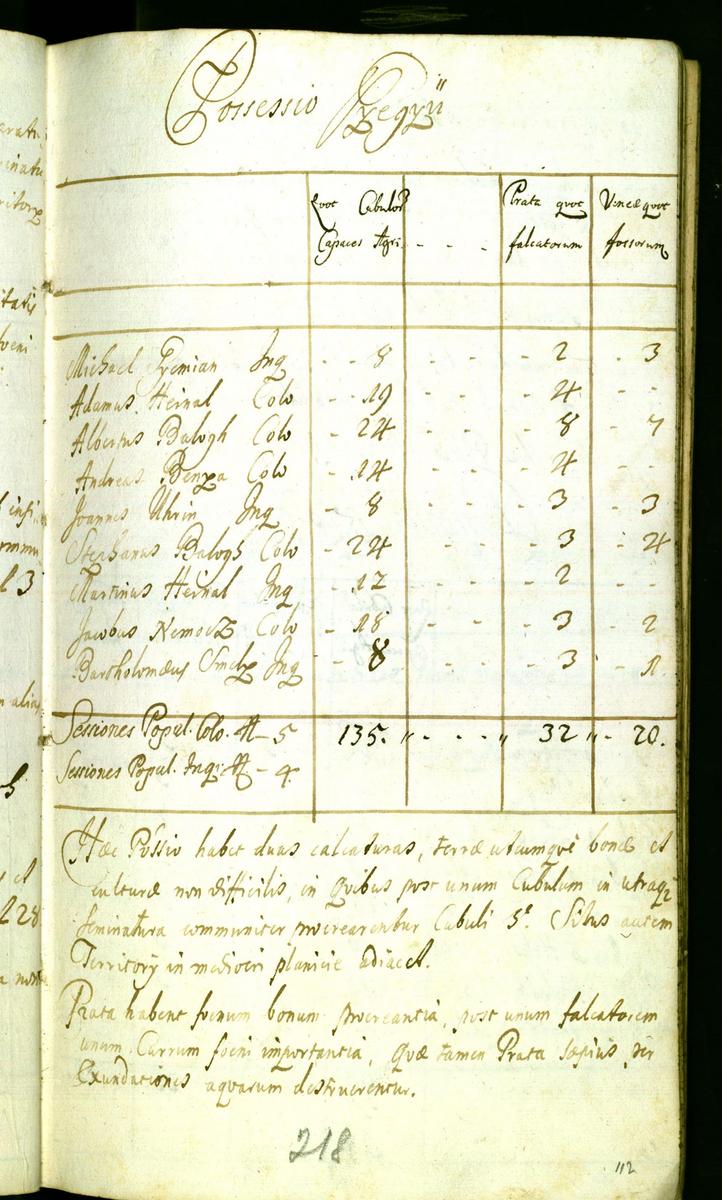 Possessio
Quot Cubulor
Capaces Agri - - -
Prata quot
falcatorum
Vineæ quot
fossorum
Michael Gremian Inq - - 8 - - - 2 - 3
Adamus Heinal Colo - 19 - - - 4 - -
Albertus Balogh Colo - 24 - - - 8 - 7
Andreas Colo - 14 - - - 4 - -
Joannes Uhrin Inq - 8 - - - 3 - 3
Stephanus Balogh Colo - 24 - - - 3 - 4
Martinus Heinal Inq - 12 - - - 2 - -
Jacobus Nemoetz Colo - 18 - - - 3 - 2
Bartholomæus Inq - 8 - - - 3 - 1
Sessiones Popul. Colo. # - 5 135. " - - - " 32 " - 20.
Sessiones Popul. Inqi # - 4.
Hæc Possio habet duas calcaturas, terræ utcumque bonæ et
culturæ non difficilis, in quibus post unum Cubulum in utraq
seminatura communiter procrearentur Cubuli 5. Situs autem
Territorij in mediocri planicie adiacet.
Prata habent foenum bonum procreantia, post unum falcatorem
unum Currum foeni importantia, quæ tamen Prata sæpius per
Exundationes aquarum destruerentur.
218
112